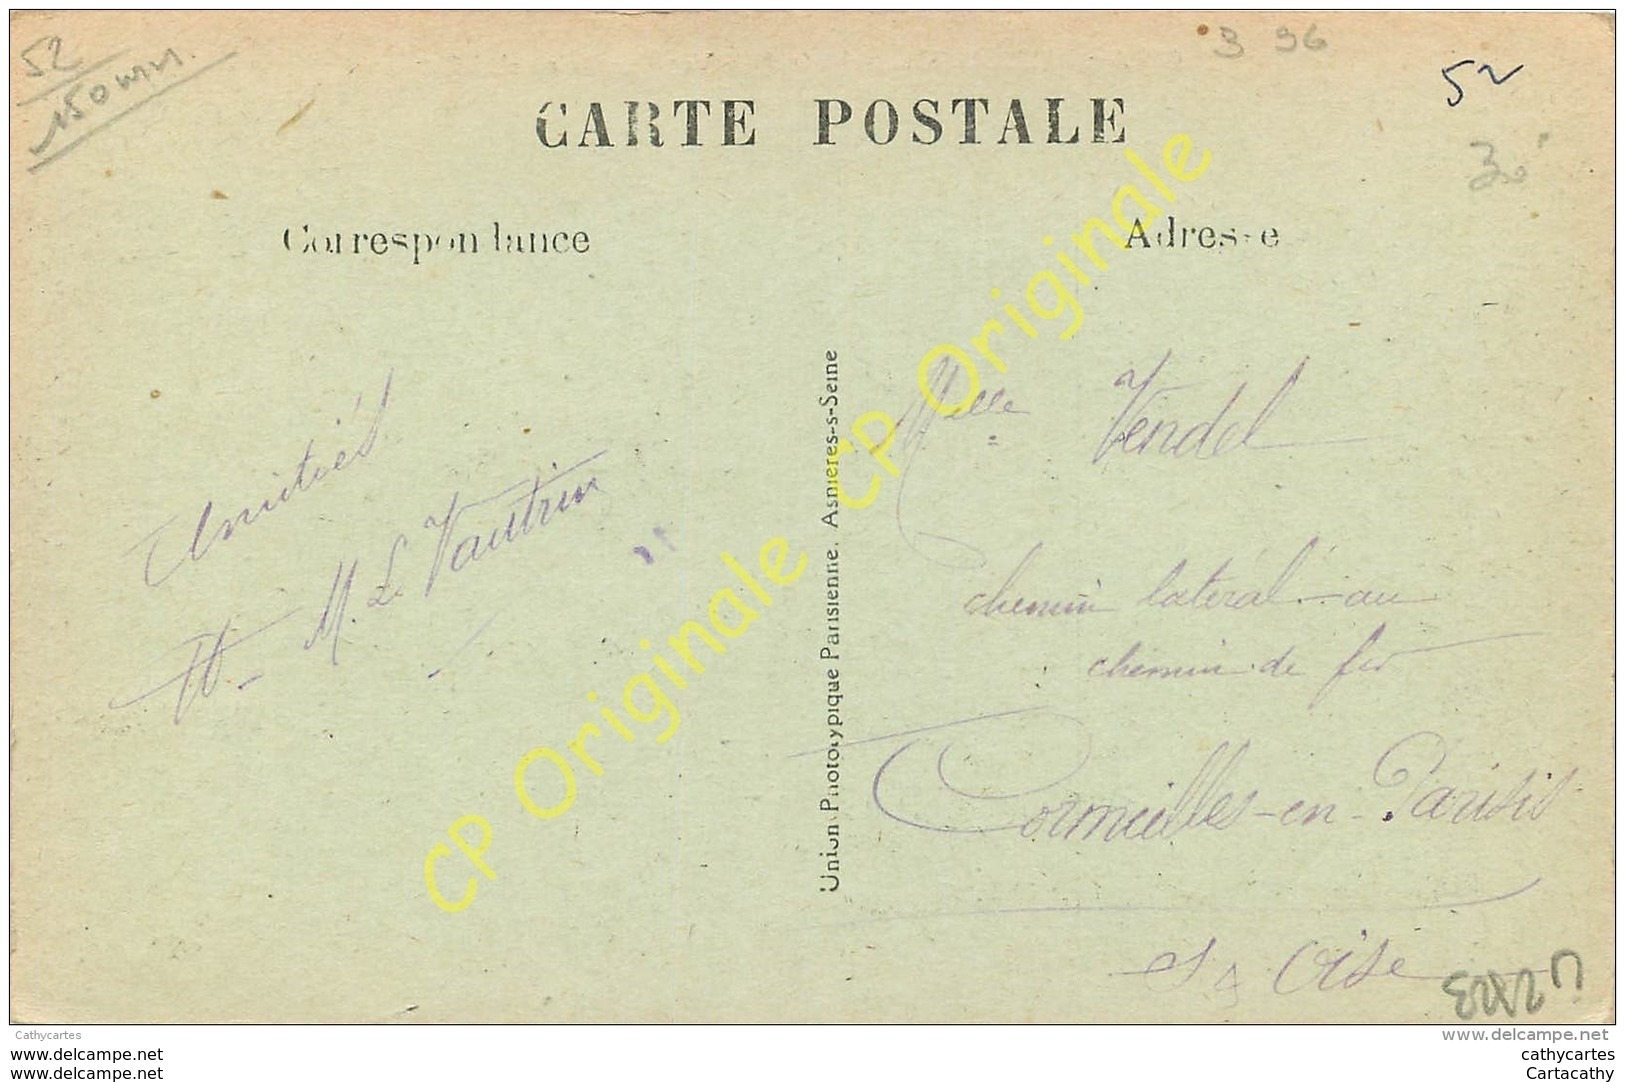 52
150 mm
3 96
52
30
CARTE POSTALE
Correspondance
Adresse
Amitiés
M. L. Vautrin
Union Phototypique Parisienne. Asnières-s-Seine
Melle Vendel
chemin latéral au
chemin de fer
Cormeilles-en-Parisis
S & Oise
CP Originale CP Originale
Cathycartes
www.delcampe.net
www.delcampe.net
www.delcampe.net
cathycartes
Cartacathy